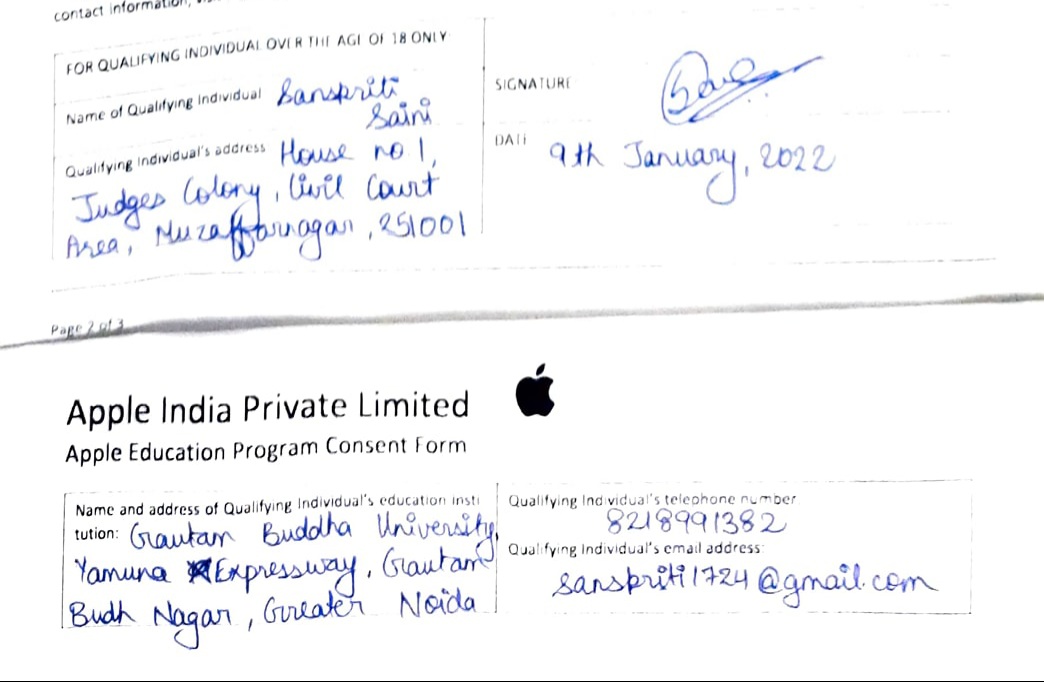 contact information,
FOR QUALIFYING INDIVIDUAL OVER THE AGE OF 18 ONLY
Name of Qualifying Individual Sanskriti
Saini
Qualifying Individual's address House no 1,
Judges Colony, Civil Court
Area, Muzaffarnagar, 251001
SIGNATURE
DATE
9th January, 2022
Page 2 of 3
Apple India Private Limited
Apple Education Program Consent Form
Name and address of Qualifying Individual's education insti
tution: Gautam Buddha University,
Yamuna Expressway, Gautam
Budh Nagar, Greater Noida
Qualifying Individual's telephone number
8218991382
Qualifying Individual's email address:
sanskriti1724@gmail.com